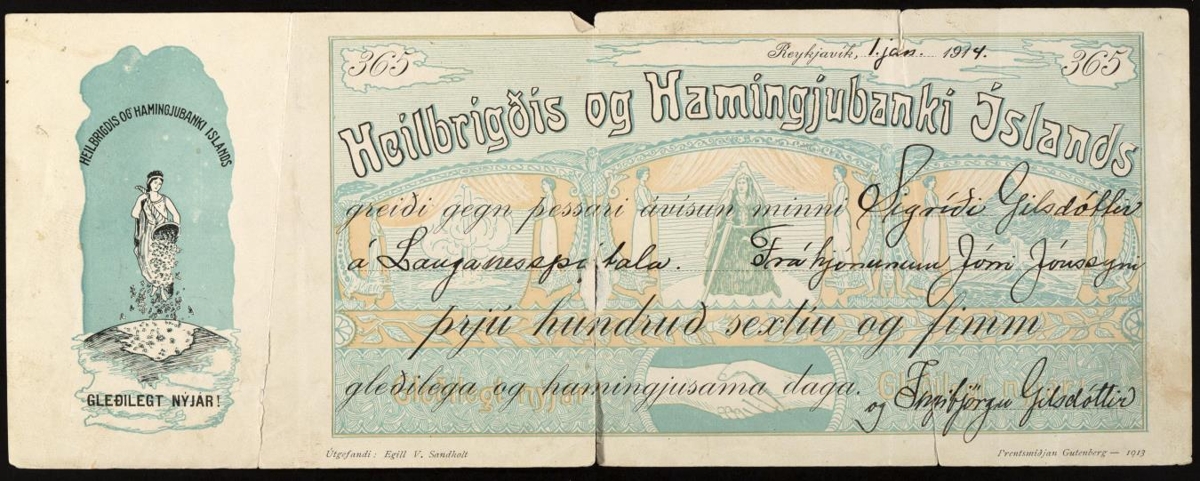 HEILBRIGÐIS OG HAMINGJUBANKI ÍSLANDS
GLEÐILEGT NÝJÁR!
365
Reykjavík, 1. jan. 1914.
365
Heilbrigðis og Hamingjubanki Íslands
greiði gegn þessari ávísun minni Sigríði Gilsdóttir
á Lauganesspítala. Frá hjónunum Jóni Jónssyni
þrjú hundruð sextíu og fimm
gleðilega og hamingjusama daga.
og Þorbjörgu Gilsdóttir
Gleðilegt nýjár
Gleðilegt nýjár
Útgefandi: Egill V. Sandholt
Prentsmiðjan Gutenberg — 1913